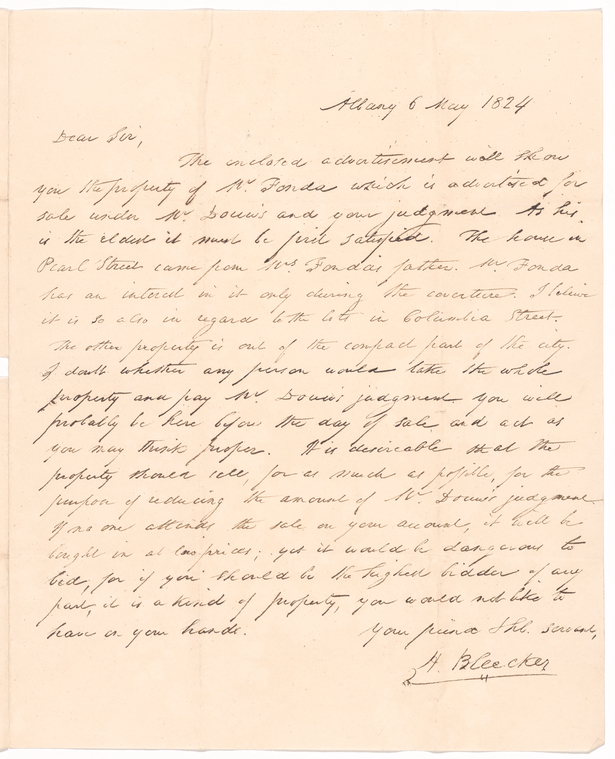 Albany 6 May 1824
Dear Sir,
The enclosed advertisement will show
you the property of Mr Fonda which is advertised for
sale under Mr Douw's and your judgment. As his
is the eldest it must be first satisfied. The house in
Pearl Street came from Mrs Fonda's father. Mr Fonda
has an interest in it only during the coverture. I believe
it is so also in regard to the lots in Columbia Street.
The other property is out of the compact part of the city.
I doubt whether any person would take the whole
property and pay Mr Douw's judgment you will
probably be here before the day of sale and act as
you may think proper. It is desireable that the
property should sell, for as much as possible, for the
purpose of reducing the amount of Mr Douw's judgment
If no one attends the sale on your account, it will be
bought in at low prices; yet it would be dangerous to
bid, for if you should be the highest bidder of any
part, it is a kind of property, you would not like to
have on your hands. Your friend & hb. servant,
H. Bleecker